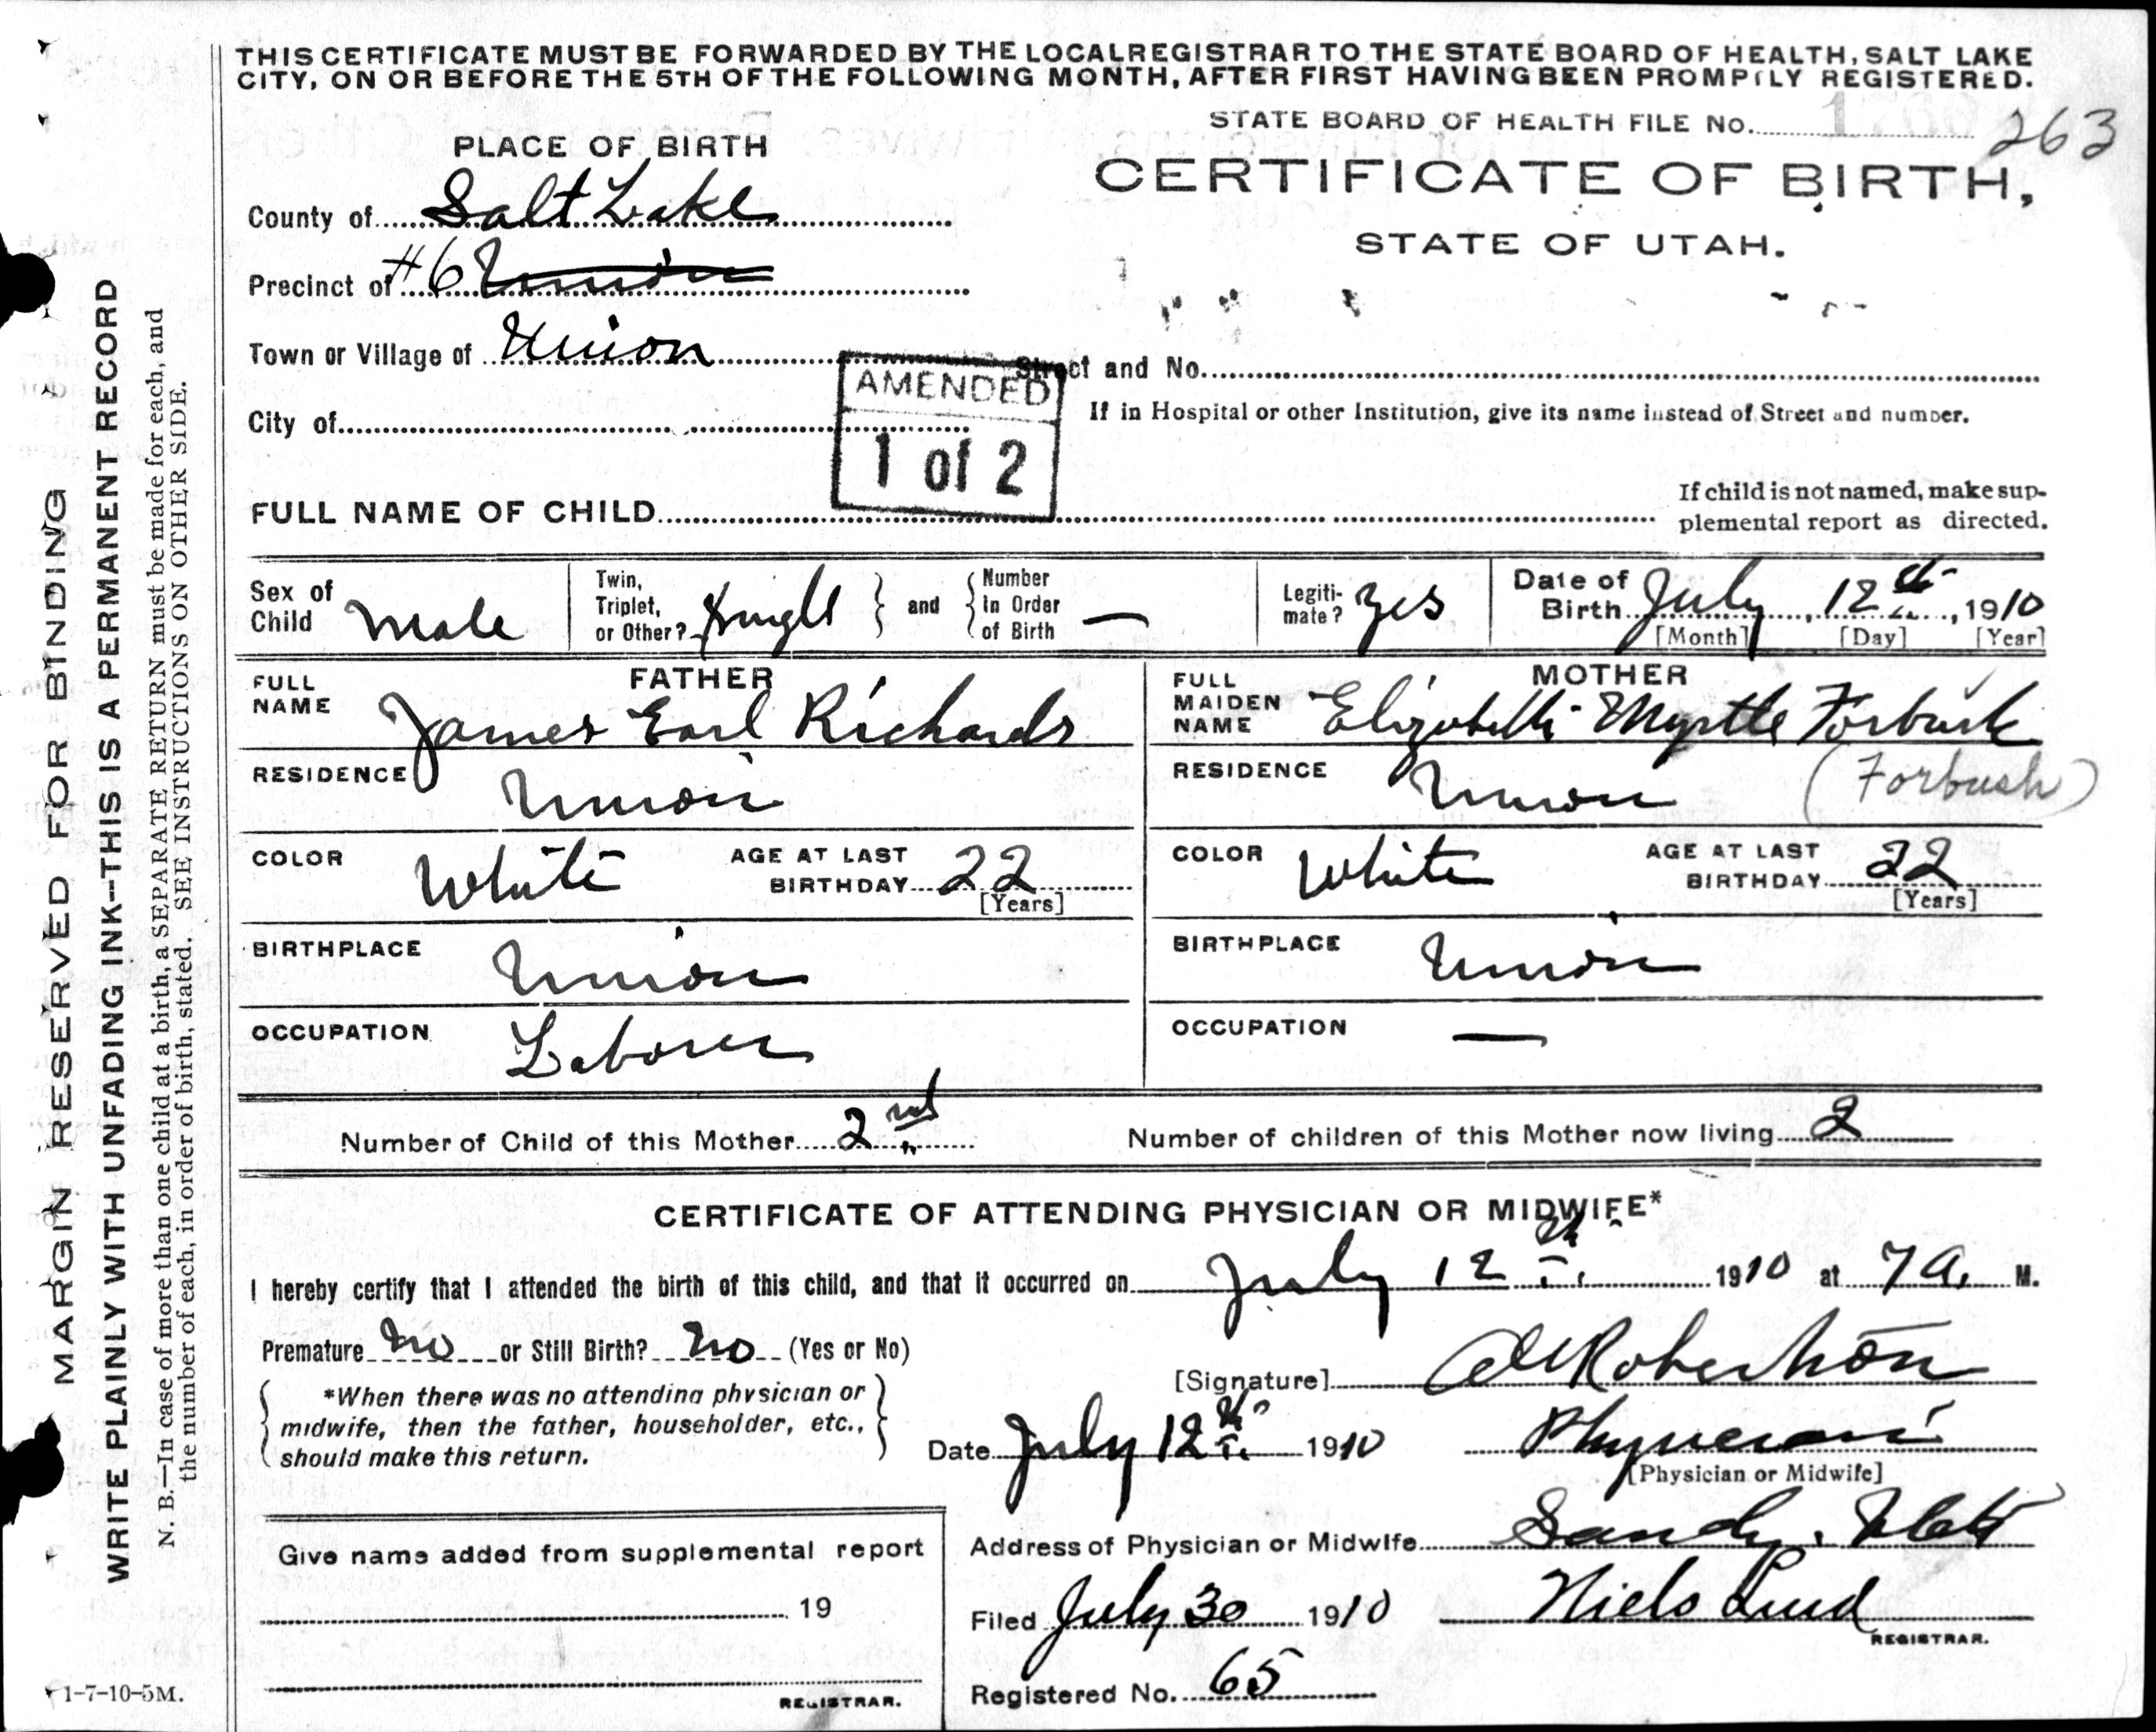 THIS CERTIFICATE MUST BE FORWARDED BY THE LOCAL REGISTRAR TO THE STATE BOARD OF HEALTH, SALT LAKE
CITY, ON OR BEFORE THE 5TH OF THE FOLLOWING MONTH, AFTER FIRST HAVING BEEN PROMPTLY REGISTERED.
STATE BOARD OF HEALTH FILE No. 263
PLACE OF BIRTH
CERTIFICATE OF BIRTH,
STATE OF UTAH.
County of Salt Lake
Precinct of #6 Union
Town or Village of Union
Street and No.
AMENDED
1 of 2
If in Hospital or other Institution, give its name instead of Street and number.
City of
FULL NAME OF CHILD
If child is not named, make sup-
plemental report as directed.
Sex of Child Male
Twin, Triplet, or Other? Single and Number in Order of Birth —
Legiti-mate? Yes
Date of Birth July 12th, 1910
[Month] [Day] [Year]
FATHER
FULL NAME James Earl Richards
RESIDENCE Union
COLOR White AGE AT LAST BIRTHDAY 22
[Years]
BIRTHPLACE Union
OCCUPATION Laborer
MOTHER
FULL MAIDEN NAME Elizabeth Myrtle Forbush
RESIDENCE Union (Forbush)
COLOR White AGE AT LAST BIRTHDAY 22
[Years]
BIRTHPLACE Union
OCCUPATION —
Number of Child of this Mother 2nd
Number of children of this Mother now living 2
CERTIFICATE OF ATTENDING PHYSICIAN OR MIDWIFE*
I hereby certify that I attended the birth of this child, and that it occurred on July 12th 1910 at 7 A. M.
Premature No or Still Birth? No (Yes or No)
*When there was no attending physician or
midwife, then the father, householder, etc.,
should make this return.
[Signature] Robertson
Date July 12th 1910 Physician
[Physician or Midwife]
Address of Physician or Midwife Sandy, Utah
Filed July 30 1910 Niels Lind
REGISTRAR.
Registered No. 65
Give name added from supplemental report
19
REGISTRAR.
MARGIN RESERVED FOR BINDING
WRITE PLAINLY WITH UNFADING INK--THIS IS A PERMANENT RECORD
N. B.—In case of more than one child at a birth, a SEPARATE RETURN must be made for each, and
the number of each, in order of birth, stated. SEE INSTRUCTIONS ON OTHER SIDE.
1-7-10-5M.